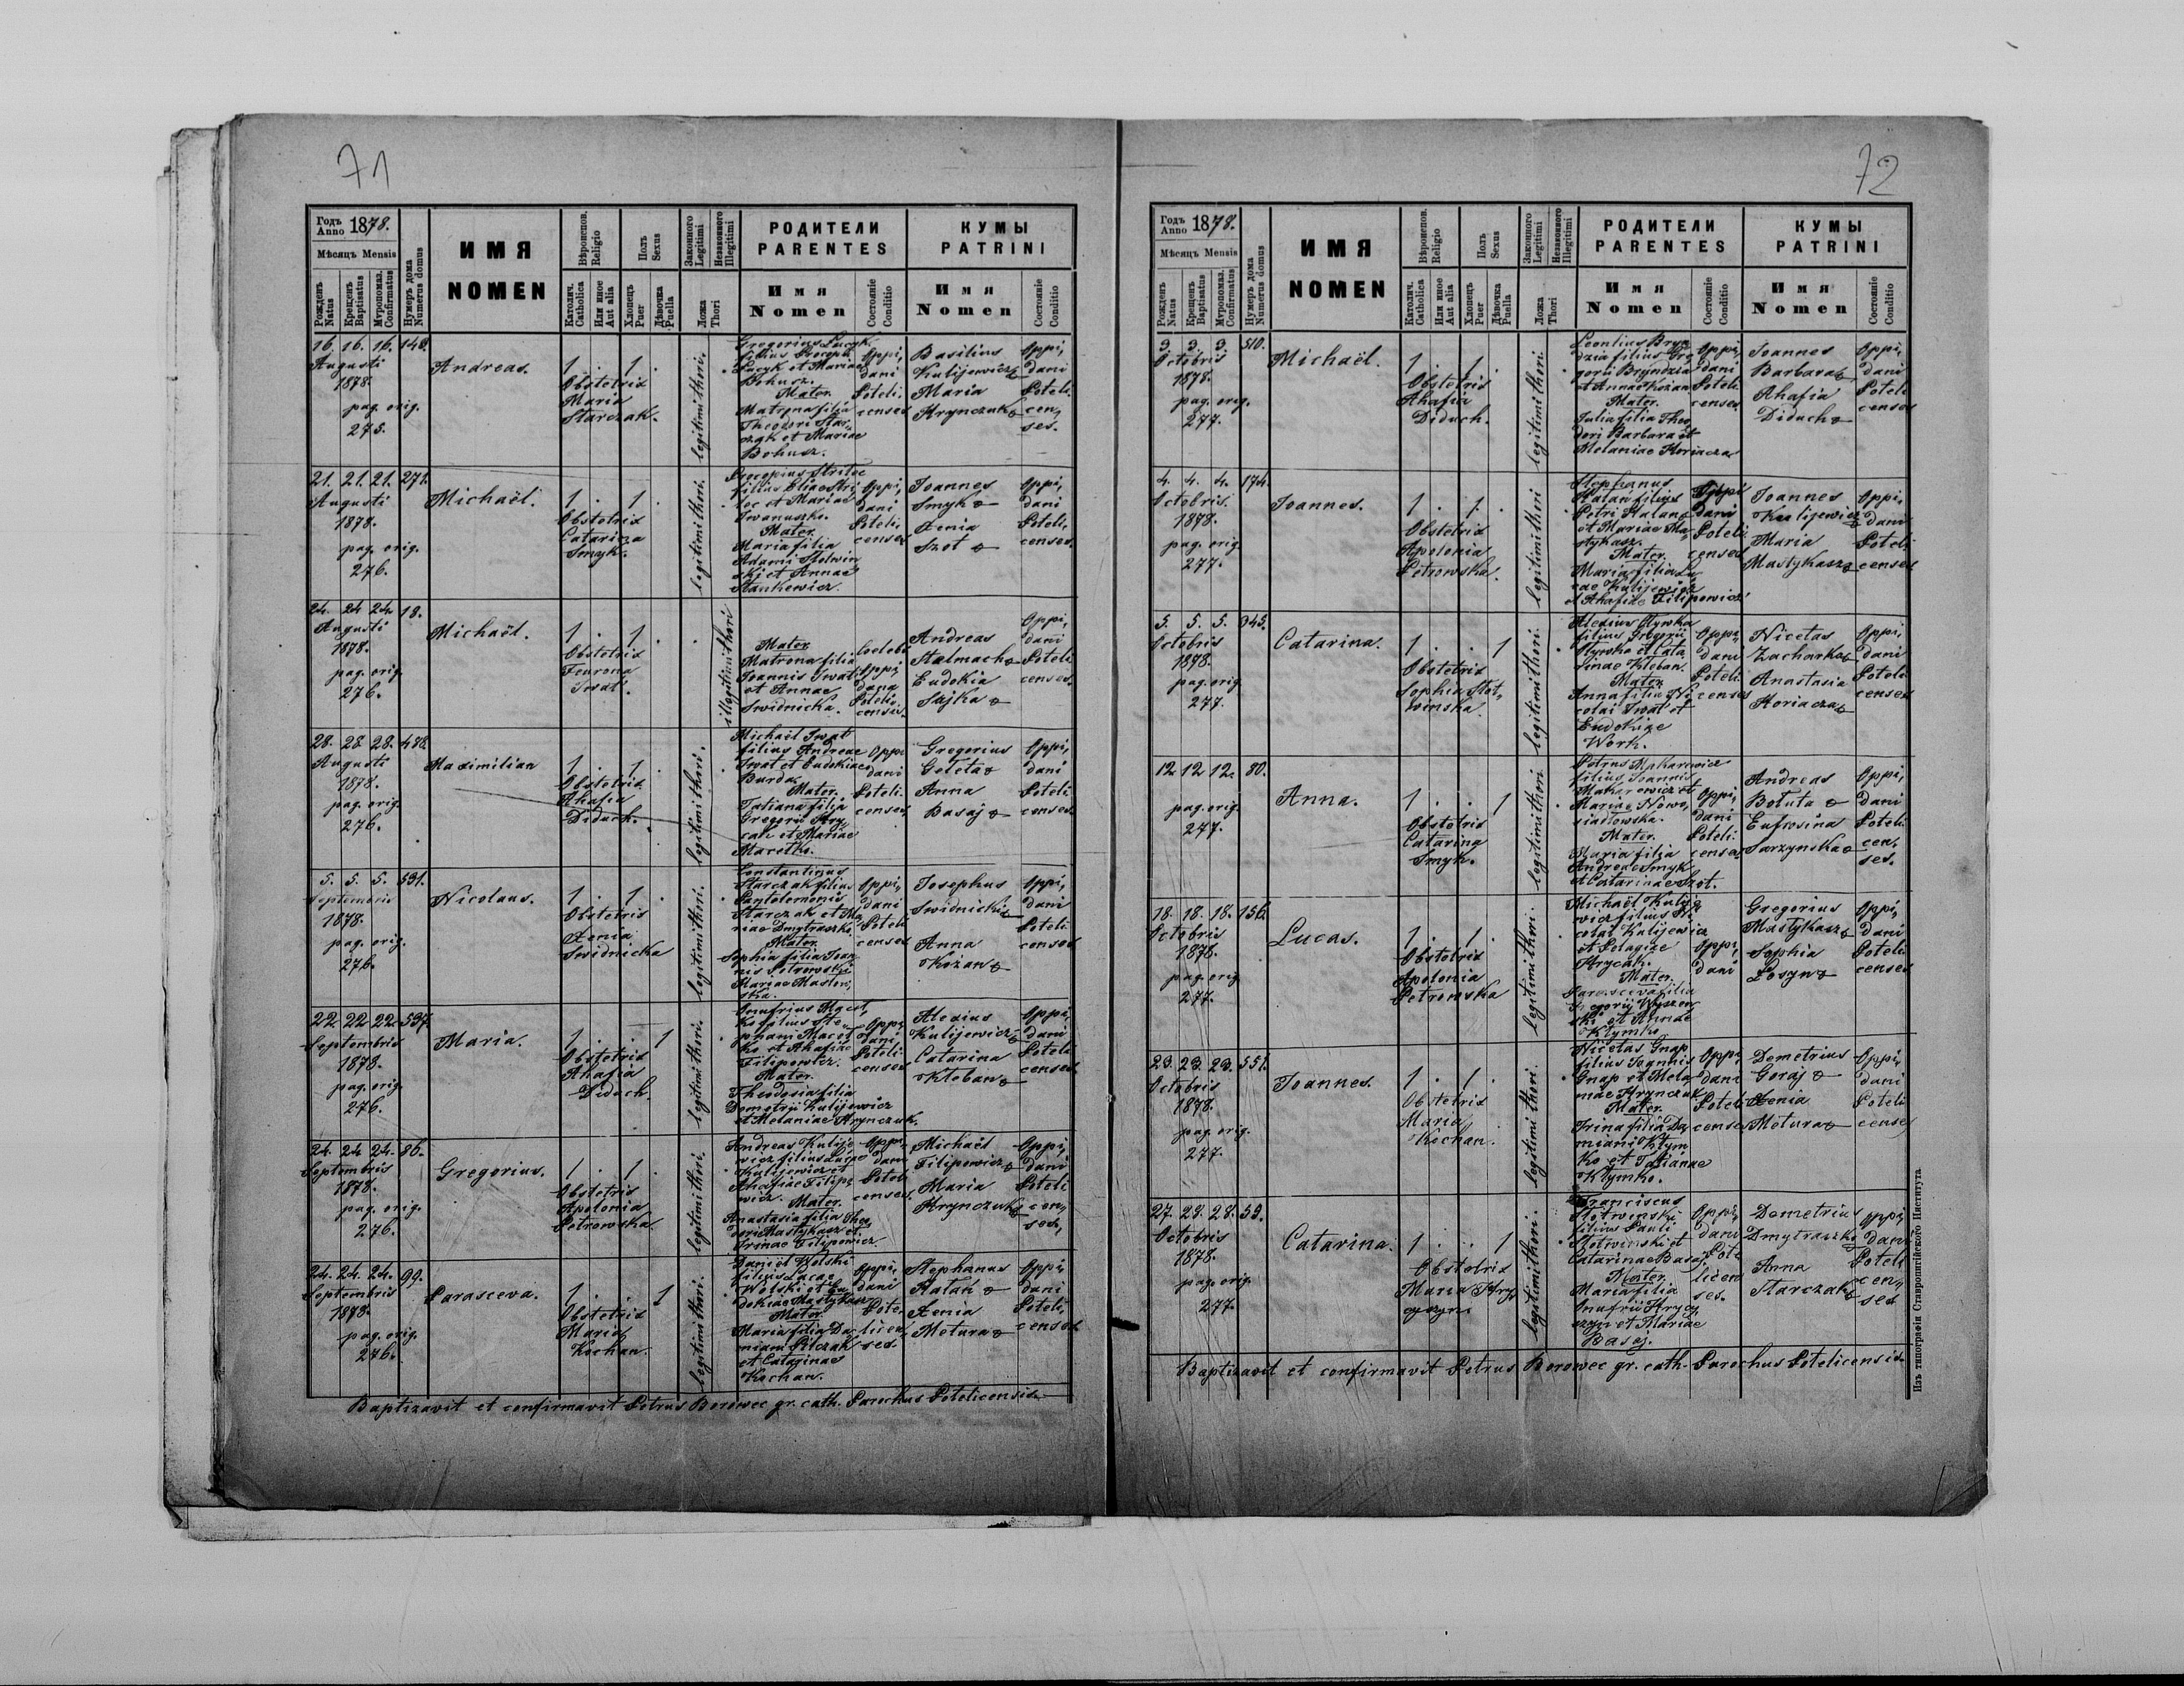 71
Годъ Anno 1878.
Мѣсяцъ Mensis
Рожденъ Natus
Крещенъ Baptisatus
Мѵропомаз. Confirmatus
Нумеръ дома Numerus domus
ИМЯ
NOMEN
Вѣроиспов. Religio
Католич. Catholica
Или иное Aut alia
Полъ Sexus
Хлопецъ Puer
Дѣвочка Puella
Законного Legitimi
Незаконного Illegitimi
Ложа Thori
РОДИТЕЛИ
PARENTES
Имя
Nomen
Состояніе Conditio
КУМЫ
PATRINI
Имя
Nomen
Состояніе Conditio
16. 16. 16.
Augusti
1878.
pag. orig.
275.
Andreas.
1 . 1 .
Obstetrix
Maria
Starczak.
legitimi thori.
Mater.
Matrona filia
Theodori Star,
czak et Mariae
Bohusz.
Oppi,
dani
Poteli,
censes
Basilius
Kulijewicz
Maria
Hrynczuk
Oppi,
dani
Poteli,
cen,
ses.
21. 21. 21. 271.
Augusti
1878.
pag. orig.
276.
Michaël.
1 . 1 .
Obstetrix
Catarina
Smyk.
legitimi thori.
Iwanuszko.
Mater.
Maria filia
Oppi,
dani
Poteli,
censes
Joannes
Smyk
Xenia
Szot
Oppi,
dani
Poteli,
censes.
24. 24. 24. 18.
Augusti
1878.
pag. orig.
276.
Michaël.
1 . 1 .
Obstetrix
Iwat.
illegitimi thori
Mater
Matrona filia
Joannis Iwat
et Annae
Swidnicka.
Andreas
Stalmach
Eudokia
Sajka
Oppi,
dani
Poteli
censes.
28. 28. 28.
Augusti
1878.
pag. orig.
276.
Maximilian
1 . 1 .
Obstetrix
Ahafia
Diduch.
legitimi thori.
Michaël Iwat
filius Andreae
Iwat et Eudokiae
Burda.
Mater.
Tatiana filia
Oppi
dani
Poteli,
censes
Gregorius
Geleta
Anna
Basaj
Oppi,
dani
Poteli
censes
5. 5. 5. 531.
Septembris
1878.
pag. orig.
276.
Nicolaus.
1 . 1 .
Obstetrix
Xenia
Swidnicka
legitimi thori.
Constantinus
Starczak filius
Pantolemonis
Starczak et Ma,
riae Dmytraszko
Mater.
Sophia filia Joan
nis Petrowski
Oppi,
dani
Poteli
censes
Josephus
Swidnicki
Anna
Kożan
Oppi,
dani
Poteli
censes
22. 22. 22. 537.
Septembris
1878.
pag. orig.
276.
Maria.
1 . . 1
Obstetrix
Ahafia
Diduch.
legitimi thori.
Filipowicz.
Mater.
Theodosia filia
Demetrii Kulijewicz
et Melaniae Hrynczuk.
Oppi,
dani
Poteli
censes
Alexius
Kulijewicz
Catarina
Kleban
Oppi,
dani
Poteli
censes
24. 24. 24. 86.
Septembris
1878.
pag. orig.
276.
Gregorius.
1 . 1 .
Obstetrix
Apolonia
Petrowska
legitimi thori.
Andreas Kulije
wicz filius Lucae
Kulijewicz et
Ahafiae Filipo
wicz.
Mater
Anastasia filia Theo
dori Mastykasz et
Irinae Filipowicz.
Oppi,
dani
Poteli
censes.
Michaël
Filipowicz
Maria
Hrynczuk
Oppi,
dani
Poteli
cen,
ses.
24. 24. 24. 99.
Septembris
1878.
pag. orig.
276.
Parasceva.
1 . . 1
Obstetrix
Maria
Kochan.
legitimi thori.
Daniel Wolski
filius Lucae
Wolski et Eu
dokiae Mastykasz
Mater
Maria filia Da
et Catarinae
Kochan.
Oppi,
dani
Pote,
licen,
ses.
Stephanus
Hałań
Xenia
Motura
Oppi,
dani
Poteli,
censes
Baptizavit et confirmavit Petrus Borowec gr. cath. Parochus Potelicensis.
72
Годъ Anno 1878.
Мѣсяцъ Mensis
Рожденъ Natus
Крещенъ Baptisatus
Мѵропомаз. Confirmatus
Нумеръ дома Numerus domus
ИМЯ
NOMEN
Вѣроиспов. Religio
Католич. Catholica
Или иное Aut alia
Полъ Sexus
Хлопецъ Puer
Дѣвочка Puella
Законного Legitimi
Незаконного Illegitimi
Ложа Thori
РОДИТЕЛИ
PARENTES
Имя
Nomen
Состояніе Conditio
КУМЫ
PATRINI
Имя
Nomen
Состояніе Conditio
3. 3. 3. 510.
Octobris
1878.
pag. orig.
277.
Michaël.
1 . 1 .
Obstetrix
Ahafia
Diduch.
legitimi thori.
Leontius Bryn
dzia filius Gre
gorii Bryndzia
et Annae Kożan
Mater.
Julia filia Theo
dori Barbara et
Melaniae Horiacza
Oppi,
dani
Poteli
censes
Joannes
Barbara
Ahafia
Diduch
Oppi,
dani
Poteli
censes
4. 4. 4. 174.
Octobris.
1878.
pag. orig.
277.
Joannes.
1 . 1 .
Obstetrix
Apolonia
Petrowska.
legitimi thori
Stephanus
Hałań filius
Petri Hałań
et Mariae Ma,
stykasz.
Mater.
Maria filia Lu
cae Kulijewicz
et Ahafiae Filipowicz
Oppi
dani
Poteli
censes
Joannes
Kulijewicz
Maria
Mastykasz
Oppi,
dani
Poteli
censes
5. 5. 5. 345.
Octobris
1878.
pag. orig.
277.
Catarina.
1 . . 1
Obstetrix
Sophia Slot,
winska.
legitimi thori.
Alexius Hywka
filius Gregorii
Hywka et Cata
rinae Kleban.
Mater
Anna filia Ni
colai Iwat et
Eudokiae
Work.
Oppi,
dani
Poteli
censes
Nicetas
Zacharko
Anastasia
Horiacza
Oppi,
dani
Poteli
censes
12. 12. 12. 80.
pag. orig.
277.
Anna.
1 . . 1
Obstetrix
Catarina
Smyk.
legitimi thori
Petrus Makarewicz
filius Joannis
Makarewicz et
Mariae Nowo,
siadłowska.
Mater.
Maria filia
Andreae Smyk
et Catarinae Szot.
Oppi,
dani
Poteli
censes
Andreas
Botuta
Eufrosina
Sarzynska
Oppi,
dani
Poteli
cen,
ses.
18. 18. 18. 156.
Octobris
1878.
pag. orig.
277.
Lucas.
1 . 1 .
Obstetrix
Apolonia
Petrowska
legitimi thori.
Michaël Kulije
wicz filius Ni
colai Kulijewicz
et Pelagiae
Hrycak.
Mater.
Parasceva filia
et Annae
Klymko
Oppi,
dani
Gregorius
Mastykasz
Sophia
Łosyn
Oppi,
dani
Poteli
censes
23. 23. 23. 551.
Octobris
1878.
pag. orig.
277.
Joannes.
1 . 1 .
Obstetrix
Maria
Kochan.
legitimi thori.
Nicetas Gnap
filius Joannis
Gnap et Mela
niae Hrynczuk
Mater.
Irina filia Da
miani Klym
ko et Tatianae
Klymko.
Oppi,
dani
Poteli
censes
Demetrius
Goraj
Xenia
Motura
Oppi,
dani
Poteli
censes
27. 28. 28. 59.
Octobris
1878.
pag. orig.
277.
Catarina.
1 . . 1
Obstetrix
Maria Hry
legitimi thori.
Franciscus
Slotwinski
filius Pauli
Slotwinski et
Catarinae Basaj.
Mater.
Maria filia
Onufrii Hrycy
szyn et Mariae
Basaj.
Oppi,
dani
Pote
licen
ses.
Demetrius
Dmytraszko
Anna
Starczak
Oppi,
dani
Poteli
cen,
ses
Baptizavit et confirmavit Petrus Borowec gr. cath. Parochus Potelicensis.
Изъ типографіи Ставропигійского Института